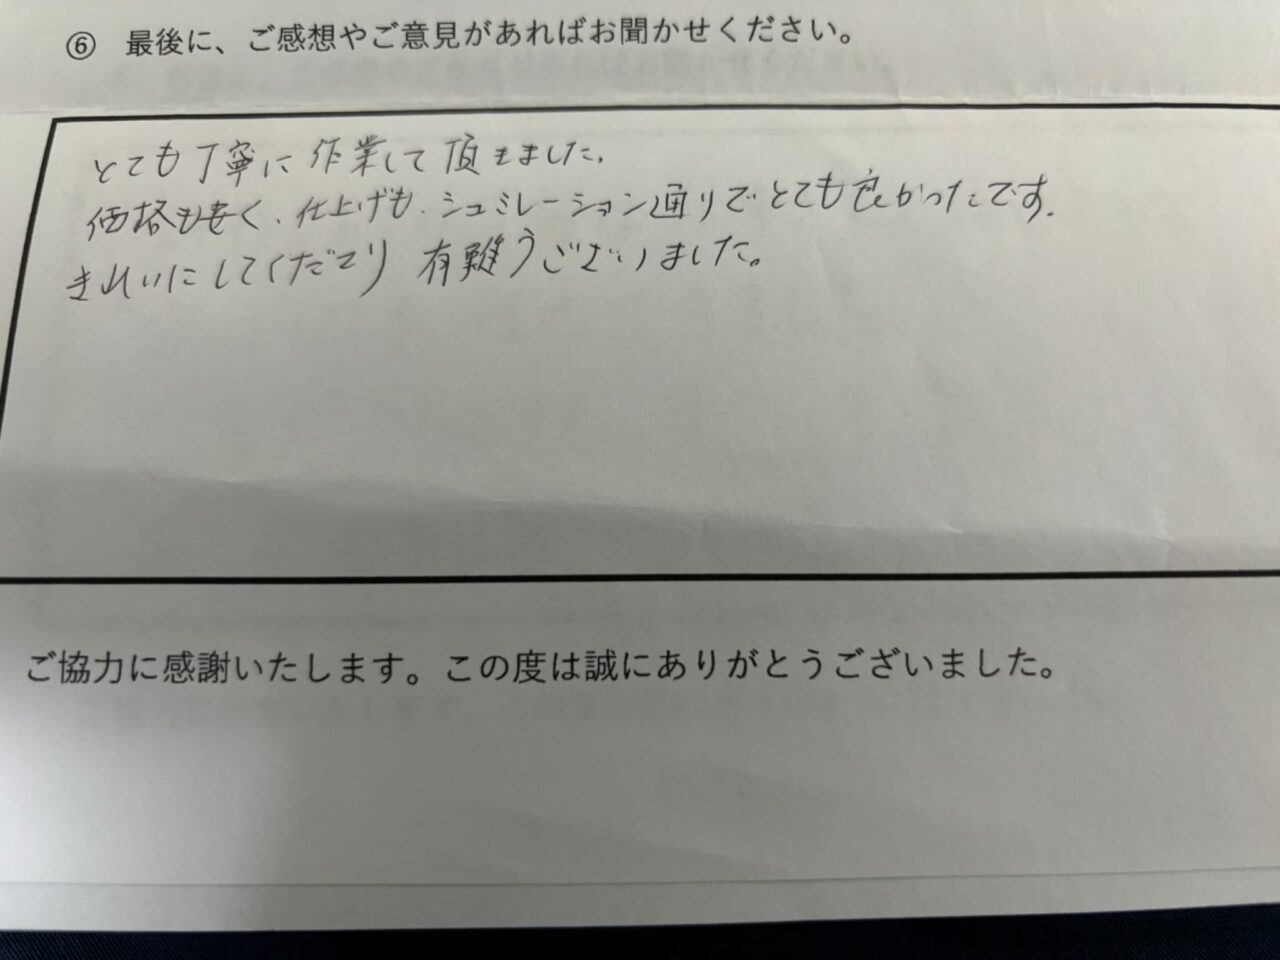 ⑥ 最後に、ご感想やご意見があればお聞かせください。
とても丁寧に作業して頂きました。
価格も安く、仕上げも、シュミレーション通りでとても良かったです。
きれいにしてくださり有難うございました。
ご協力に感謝いたします。この度は誠にありがとうございました。